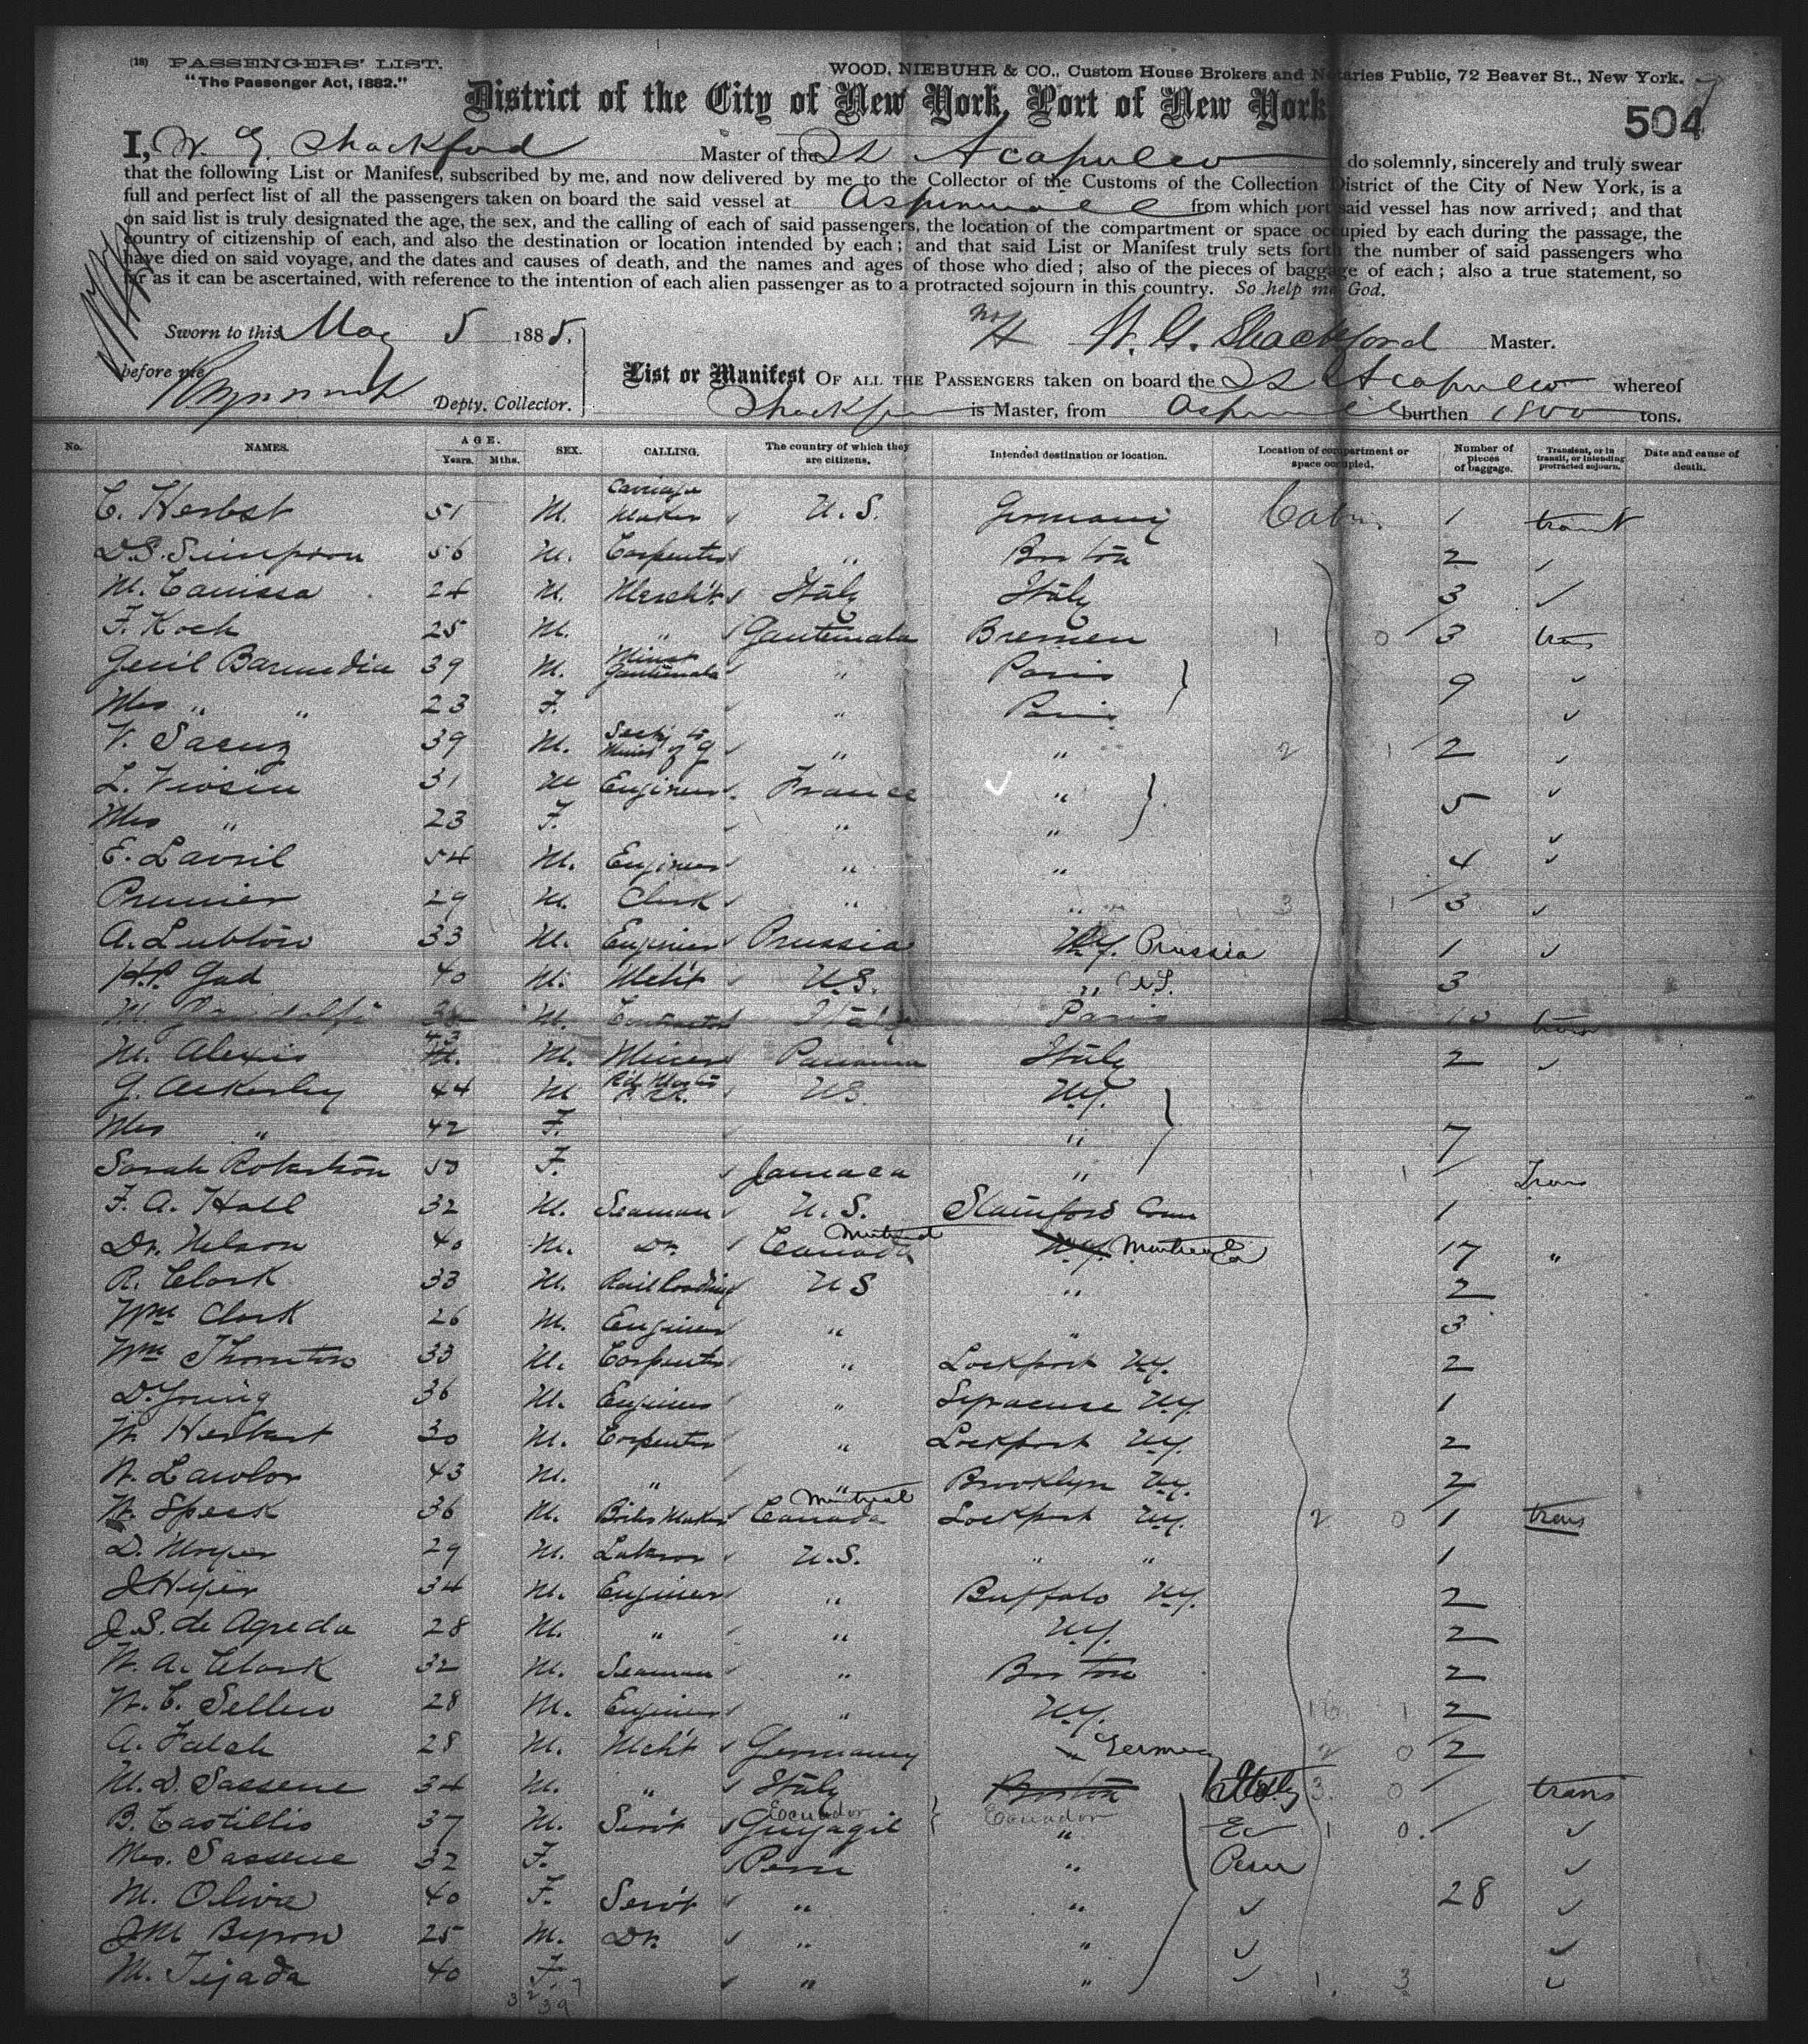 (18) PASSENGERS' LIST.
"The Passenger Act, 1882."
WOOD, NIEBUHR & CO., Custom House Brokers and Notaries Public, 72 Beaver St., New York.
District of the City of New York, Port of New York
504
I, W. G. Shackford Master of the SS Acapulco do solemnly, sincerely and truly swear
that the following List or Manifest, subscribed by me, and now delivered by me to the Collector of the Customs of the Collection District of the City of New York, is a
full and perfect list of all the passengers taken on board the said vessel at Aspinwall from which port said vessel has now arrived; and that
on said list is truly designated the age, the sex, and the calling of each of said passengers, the location of the compartment or space occupied by each during the passage, the
country of citizenship of each, and also the destination or location intended by each; and that said List or Manifest truly sets forth the number of said passengers who
have died on said voyage, and the dates and causes of death, and the names and ages of those who died; also of the pieces of baggage of each; also a true statement, so
far as it can be ascertained, with reference to the intention of each alien passenger as to a protracted sojourn in this country. So help me God.
Sworn to this May 5 1885.
W. G. Shackford Master.
before me
Depty. Collector.
List or Manifest OF ALL THE PASSENGERS taken on board the SS Acapulco whereof
Shackford is Master, from Aspinwall burthen 1800 tons.
No. NAMES. AGE. Years. Mths. SEX. CALLING. The country of which they are citizens. Intended destination or location. Location of compartment or space occupied. Number of pieces of baggage. Transient, or in transit, or intending protracted sojourn. Date and cause of death.
C. Herbst 51 M. Carriage Maker U.S. Germany Cabin 1 transit
D.S. Simpson 56 M. Carpenter " Boston 2
M. Canissa 24 M. Merch't Italy Italy 3
F. Koch 25 M. " Gautemala Bremen 3 trans
Genl Barrundia 39 M. Minst Gautemala " Paris 9
Mrs " " 23 F. " Paris
V. Saenz 39 M. Secty to Minst of G " " 2
L. Voisin 31 M Engineer France " 5
Mrs " 23 F. " "
E. Lavril 54 M. Engineer " " 4
Prunier 29 M. Clerk " " 3
A. Lublow 33 M. Engineer Prussia N.Y. Prussia 1
H.P. Gad 40 M. Mcht U.S. " U.S. 3
M. M. Contractor Italy Paris 10 trans
M. Alexis 43 M. Miner Panama Italy 2
G. Ackerley 44 M R.R. U.S. N.Y.
Mrs " 42 F. " 7
Sarah Robertson 50 F. Jamaca " Trans
F. A. Hall 32 M. Seaman U.S. Stamford Conn 1
Dr. Nelson 40 M. Dr. Canada Montreal N.Y. Montreal Ca 17 "
R. Clark 33 M. Rail Roading U S " 2
Wm Clark 26 M. Engineer " " 3
Wm Thornton 33 M. Carpenter " Lockport N.Y. 2
D. Young 36 M. Engineer " Syracuse N.Y. 1
W. Herbert 30 M. Carpenter " Lockport N.Y. 2
W. Lawlor 43 M. " " Brooklyn N.Y. 2
W. Speck 36 M. Boiler Maker Canada Montreal Lockport N.Y. 2 0 1 trans
D. Moyer 29 M. Laborer U.S. " " 1
J Hyer 34 M. Engineer " Buffalo N.Y. 2
J. S. de Agreda 28 M. " " N.Y. 2
W. A. Clark 32 M. Seaman " Boston 2
W. C. Sellew 28 M. Engineer " N.Y. 16 1 2
A. Falch 28 M. Mcht Germany " Germany 2 0 2
M. D. Sassene 34 M. " Italy Boston Italy 3 0 trans
B. Castillio 37 M. Serv't Guyaqil Ecuador Ecuador " Ec 1 0
Mrs. Sassene 32 F. Peru " Peru
M. Oliva 40 F. Serv't " " 28
J M Byron 25 M. Dr. " "
M. Tejada 40 F. " " 1 3